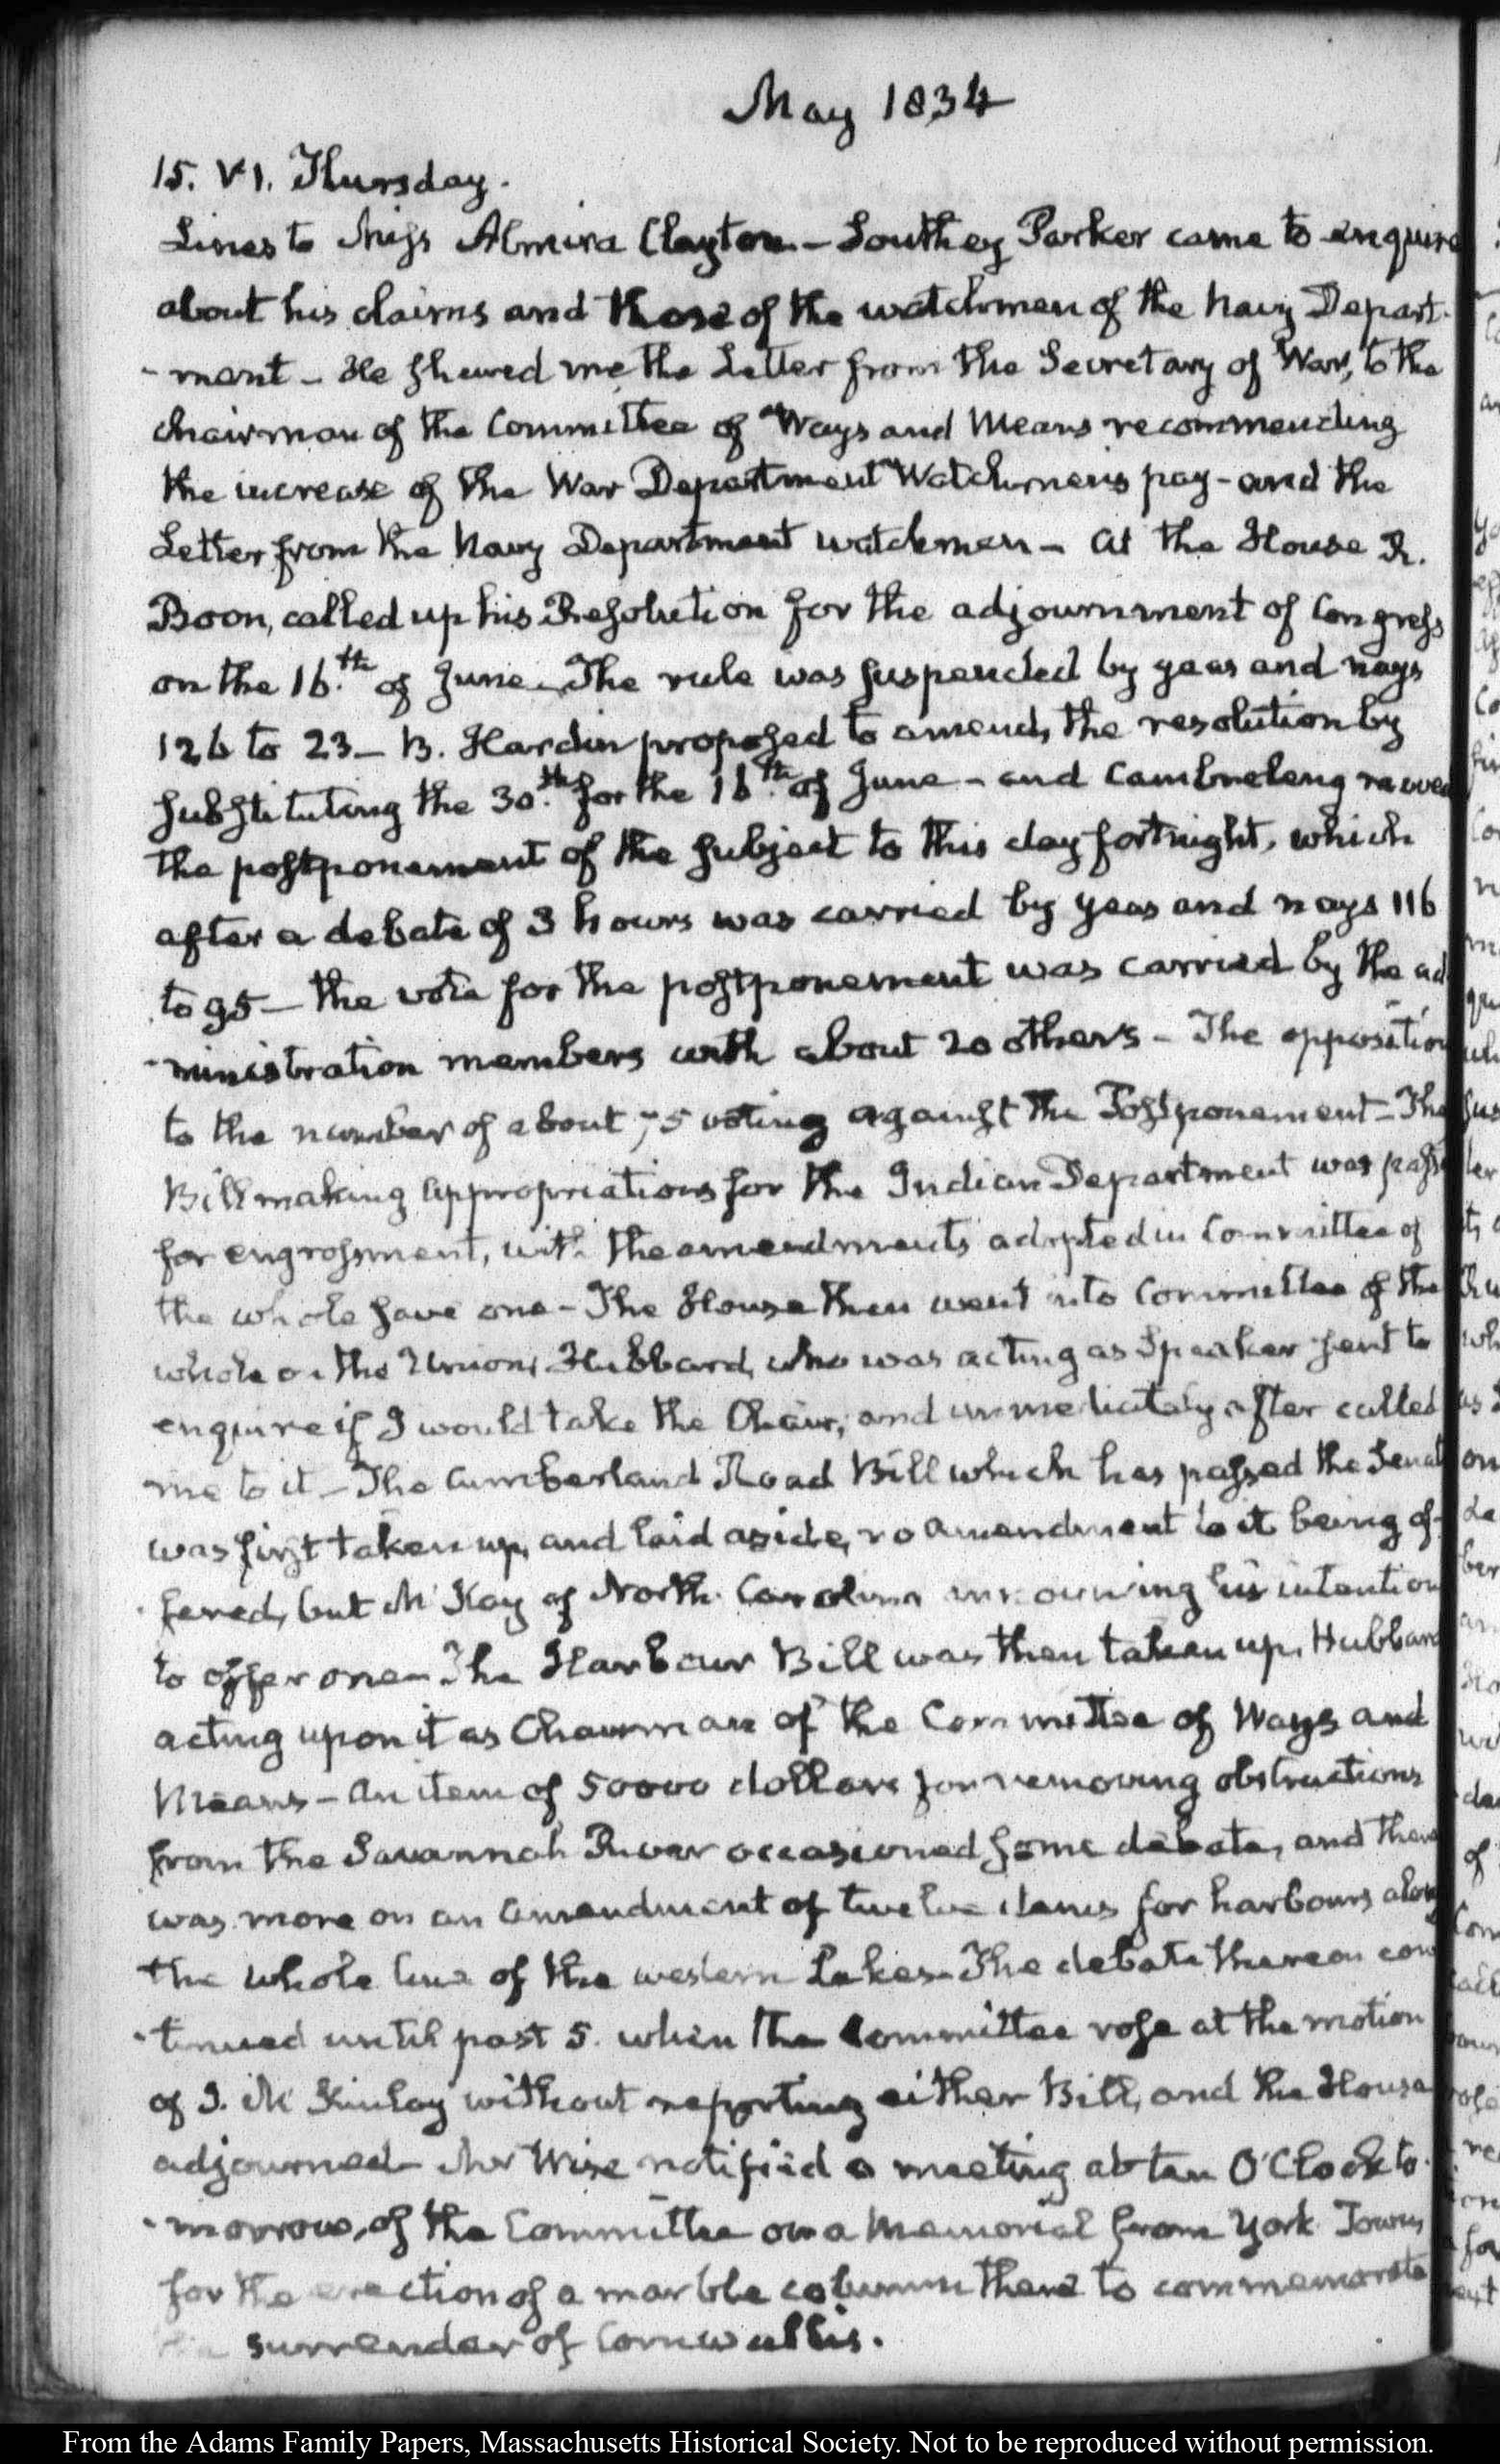 May 1834
15. VI. Thursday.
Lines to Miss Almira Clayton — Southey Parker came to enquire
about his claims and those of the watchmen of the Navy Depart-
-ment — He shewed me the Letter from the Secretary of War, to the
Chairman of the Committee of Ways and Means recommending
the increase of the War Department Watchmen's pay — and the
Letter from the Navy Department watchmen — At the House R.
Boon, called up his Resolution for the adjournment of Congress
on the 16.th of June — The rule was suspended by yeas and nays
126 to 23 — B. Hardin proposed to amend, the resolution by
substituting the 30.th for the 16.th of June — and Cambreleng moved
the postponement of the subject to this day fortnight, which
after a debate of 3 hours was carried by yeas and nays 116
to 95 — the vote for the postponement was carried by the ad
-ministration members with about 20 others — The opposition
to the number of about 75 voting against the Postponement — The
Bill making appropriations for the Indian Department was pass
for engrossment, with the amendments adopted in Committee of
the whole save one — The House then went into Committee of the
whole on the Union, Hubbard, who was acting as Speaker sent to
enquire if I would take the Chair, and immediately after called
me to it — The Cumberland Road Bill which has passed the Senate
was first taken up, and laid aside, no amendment to it being of-
-fered, but McKay of North Carolina announcing his intention
to offer one — The Harbour Bill was then taken up, Hubbard
acting upon it as Chairman of the Committee of Ways and
Means — An item of 50000 dollars for removing obstructions
from the Savannah River occasioned some debate, and there
was more on an amendment of twelve items for harbours along
the whole line of the western Lakes — The debate thereon con
-tinued until past 5. when the Committee rose at the motion
of J. McKinlay without reporting either Bill, and the House
adjourned — Mr Wise notified a meeting at ten O'Clock to-
-morrow, of the Committee on a Memorial from York Town,
for the erection of a marble column there to commemorate
the surrender of Cornwallis.
From the Adams Family Papers, Massachusetts Historical Society. Not to be reproduced without permission.